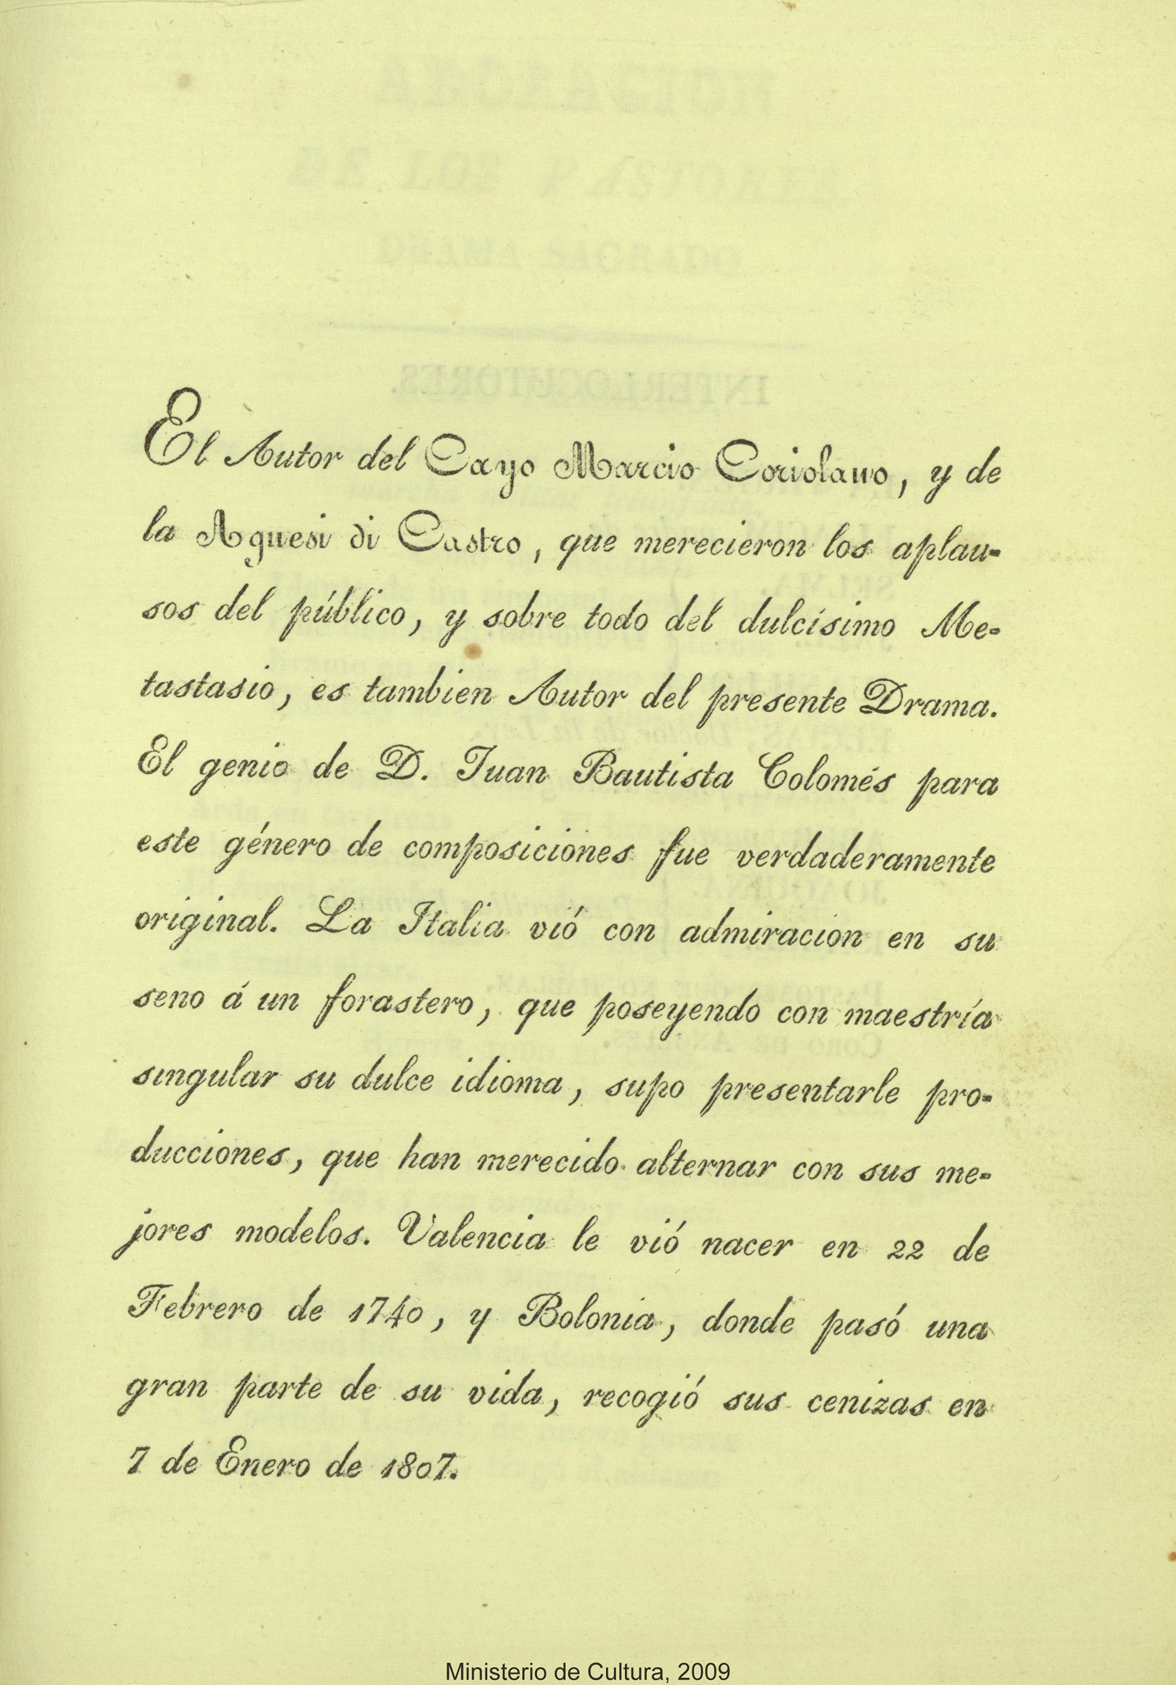 El Autor del Cayo Marcio Coriolano, y de
la Agnesi di Castro, que merecieron los aplau-
sos del público, y sobre todo del dulcísimo Me-
tastasio, es tambien Autor del presente Drama.
El genio de D. Juan Bautista Colomés para
este género de composiciones fue verdaderamente
original. La Italia vió con admiracion en su
seno á un forastero, que poseyendo con maestría
singular su dulce idioma, supo presentarle pro-
ducciones, que han merecido alternar con sus me-
jores modelos. Valencia le vió nacer en 22 de
Febrero de 1740, y Bolonia, donde pasó una
gran parte de su vida, recogió sus cenizas en
7 de Enero de 1807.
Ministerio de Cultura, 2009